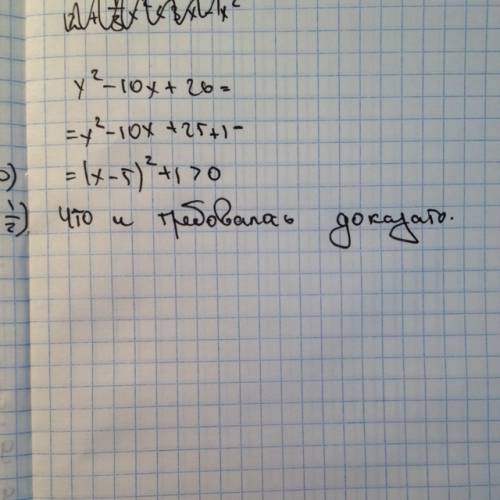 x² - 10x + 26 =
= x² - 10x + 25 + 1 =
= (x - 5)² + 1 > 0
что и требовалась доказать.